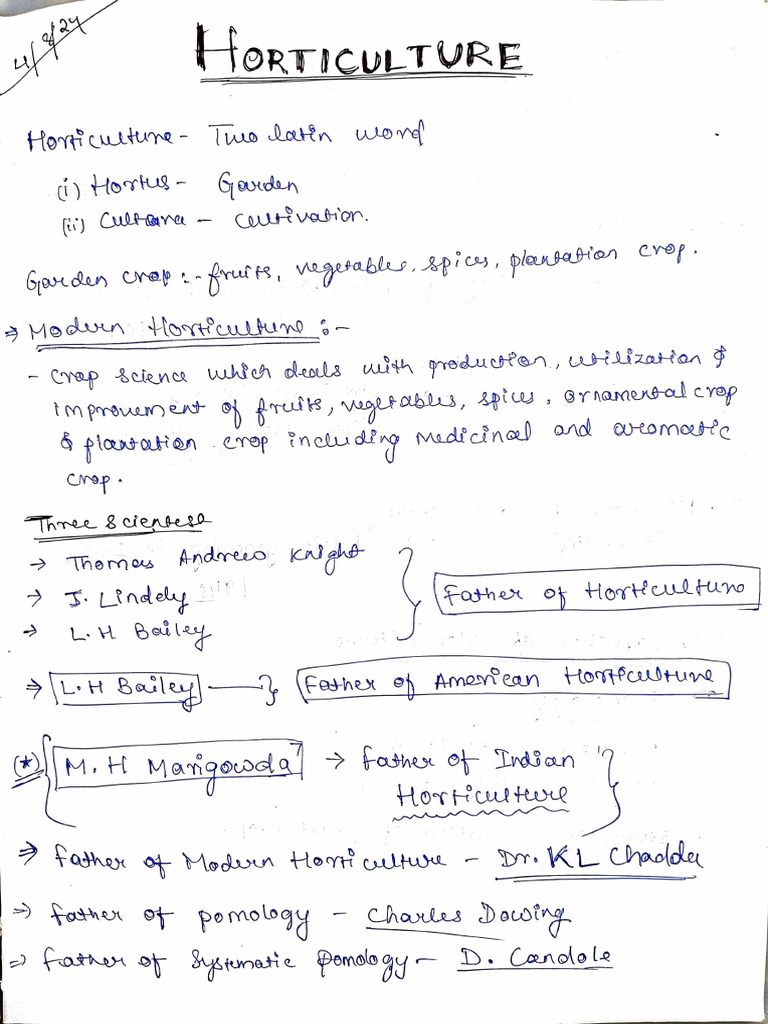 4/8/24
HORTICULTURE
Horticulture - Two latin word
(i) Hortus - Garden
(ii) Cultura - Cultivation.
Garden crop :- fruits, vegetables, spices, plantation crop.
⇒ Modern Horticulture :-
- Crop science which deals with production, utilization &
improvement of fruits, vegetables, spices, ornamental crop
& plantation crop including medicinal and aromatic
crop.
Three Scientest
→ Thomas Andrew Knight
→ J. Lindely
→ L.H Bailey
Father of Horticulture
⇒ L.H Bailey
Father of American Horticulture
(*) M.H Marigowda → father of Indian
Horticulture
⇒ father of Modern Horticulture - Dr. KL Chadda
⇒ father of pomology - Charles Dowing
⇒ father of Systematic Pomology - D. Candole